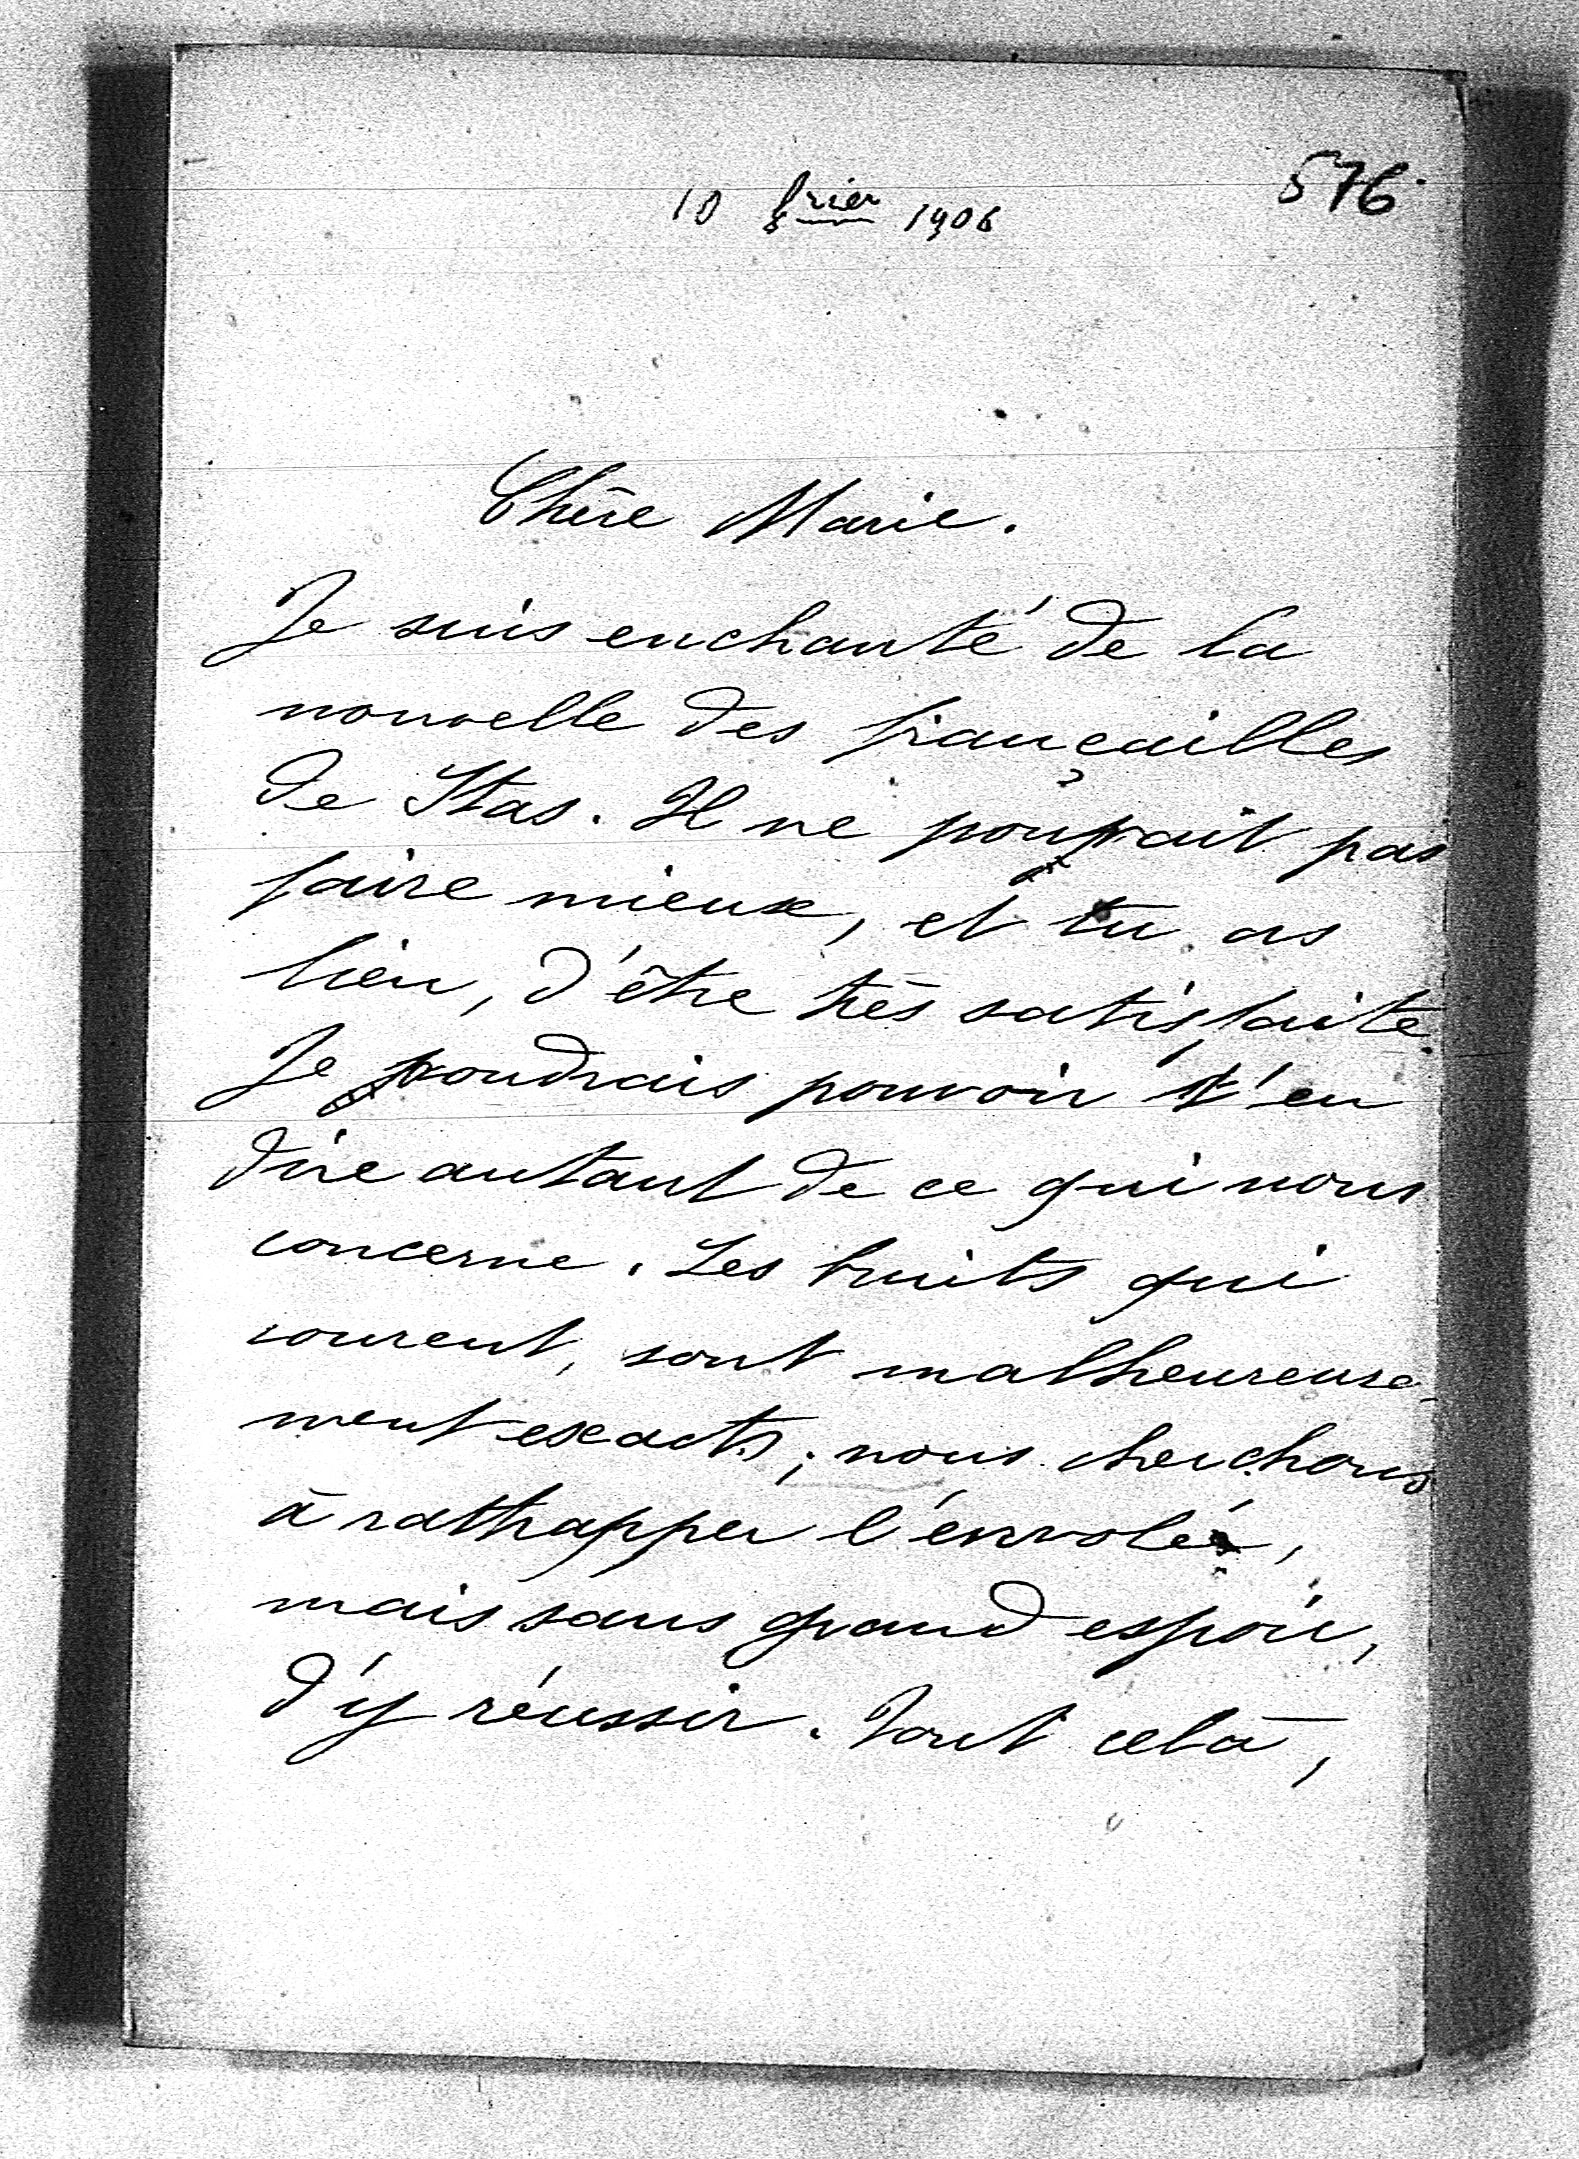 576.
10 frier 1906
Chère Marie.
Je suis enchanté de la
nouvelle des françailles
de Stas. Il ne pouvait pas
faire mieux, et tu as
lieu, d'être très satisfaite.
Je voudrais pouvoir t'en
dire autant de ce qui nous
concerne. Les bruits qui
courent, sont malheureuse-
ment exacts; nous cherchons
à rathrapper l'envolée,
mais sans grand espoir,
d'y réussir. Tout celà,